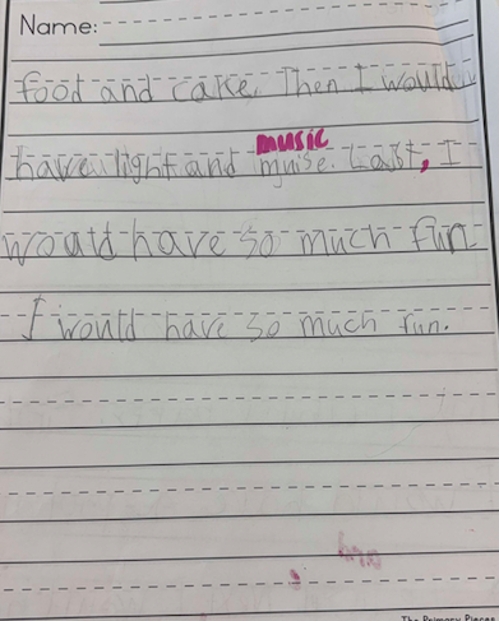 Name:
food and cake. Then I would
have light and music
muise. Last, I
woald have so much fun
I would have so much fun.
The Primary Pieces